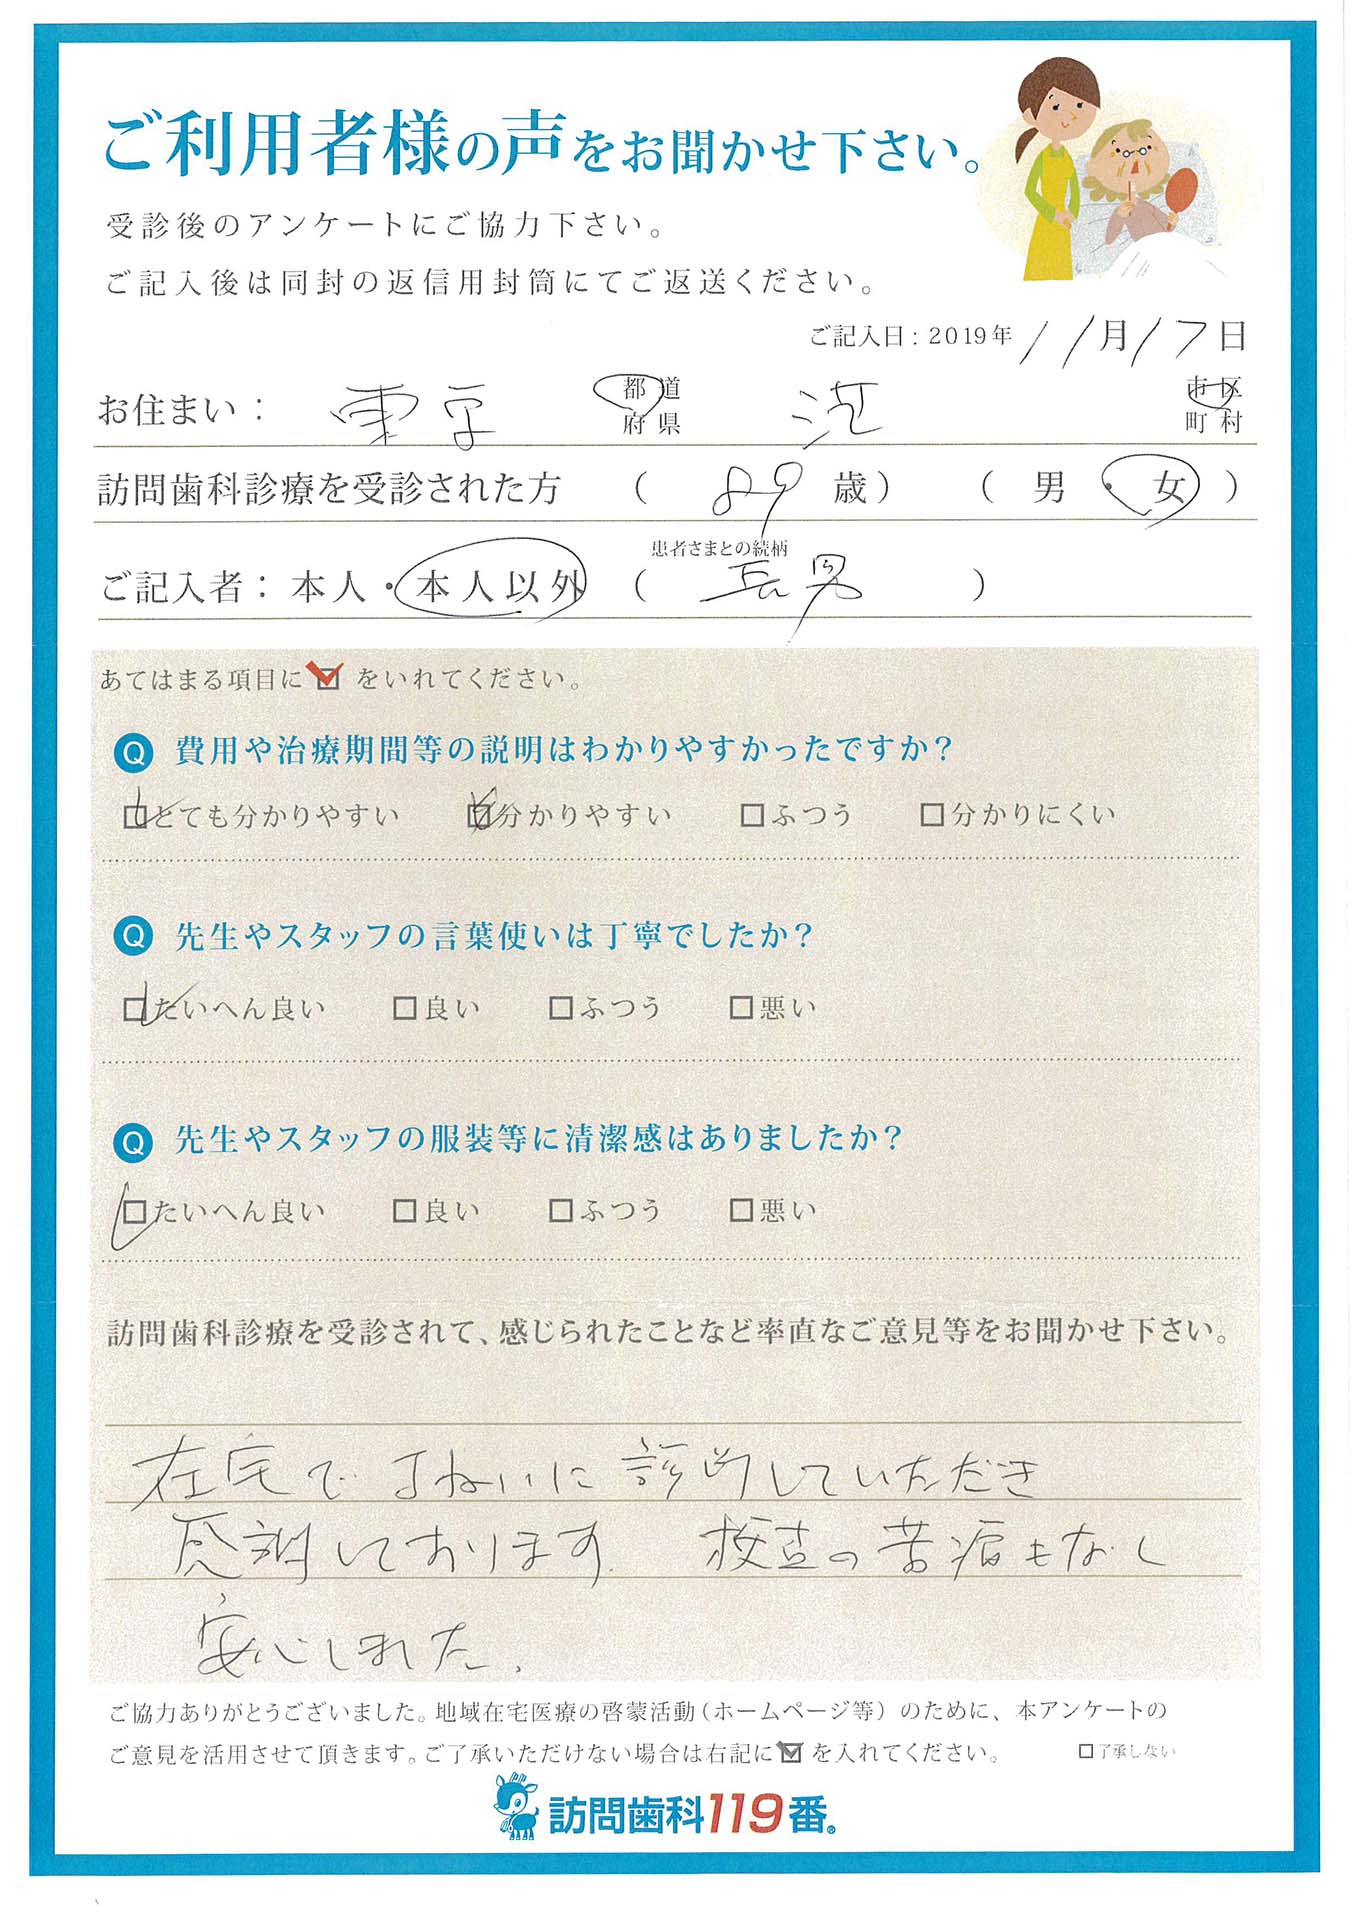 ご利用者様の声をお聞かせ下さい。
受診後のアンケートにご協力下さい。
ご記入後は同封の返信用封筒にてご返送ください。
ご記入日：2019年 11月17日
お住まい： 東京 都道府県 港 市区町村
訪問歯科診療を受診された方 （ 89 歳） （ 男 ・ 女 ）
患者さまとの続柄
ご記入者：本人・本人以外 （ 長男 ）
あてはまる項目に☑をいれてください。
Q 費用や治療期間等の説明はわかりやすかったですか？
☑とても分かりやすい ☑分かりやすい □ふつう □分かりにくい
Q 先生やスタッフの言葉使いは丁寧でしたか？
☑たいへん良い □良い □ふつう □悪い
Q 先生やスタッフの服装等に清潔感はありましたか？
☑たいへん良い □良い □ふつう □悪い
訪問歯科診療を受診されて、感じられたことなど率直なご意見等をお聞かせ下さい。
在宅でていねいに診断していただき
感謝しております. の苦痛もなし
安心しました.
ご協力ありがとうございました。地域在宅医療の啓蒙活動（ホームページ等）のために、本アンケートの
ご意見を活用させて頂きます。ご了承いただけない場合は右記に☑を入れてください。 □了承しない
訪問歯科119番®